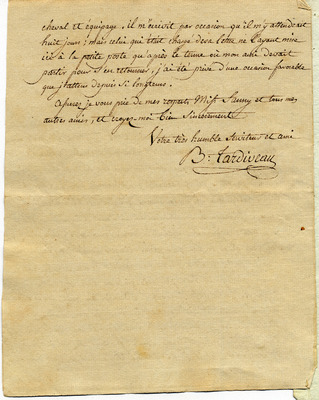 cheval et équipage, il m'écrivit par occasion qu'il m'y attendrait
huit jours; mais celui qui était chargé de sa lettre ne l'ayant mise
ici à la petite poste qu'après le terme où mon ami devait
partir pour s'en retourner, j'ai été privé d'une occasion favorable
que j'attens depuis si longtems.
Assurez je vous prie de mes respects, Miss Fanny et tous nos
autres amis, et croyez-moi bien sincèrement
Votre très humble serviteur et ami
B: Tardiveau